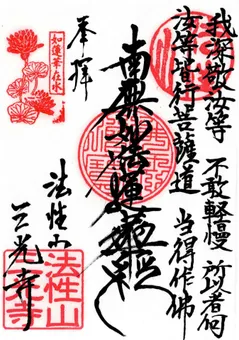 我深敬汝等 不敢軽慢 所以者何
汝等皆行菩薩道 当得作佛
南無妙法蓮華経
奉拝
如蓮華在水
法性山
三光寺
法性山
三光寺